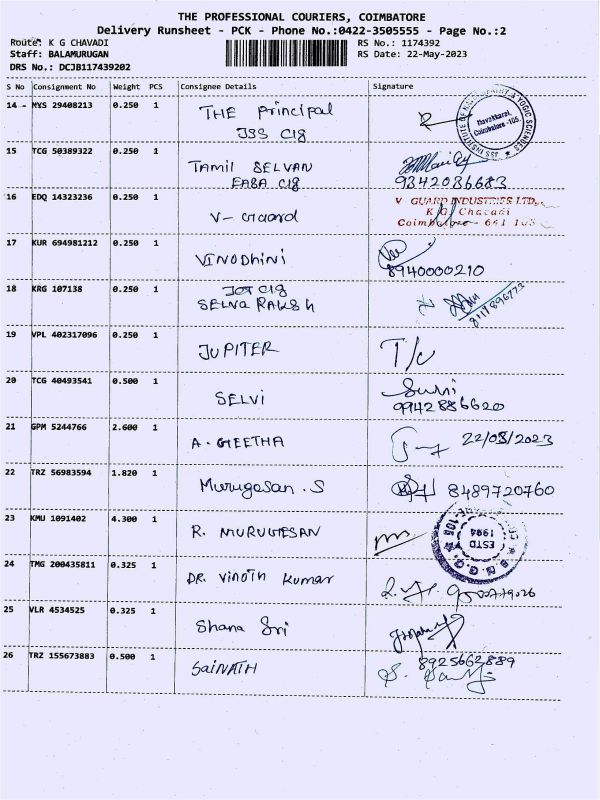 THE PROFESSIONAL COURIERS, COIMBATORE
Delivery Runsheet - PCK - Phone No.:0422-3505555 - Page No.:2
Route: K G CHAVADI
Staff: BALAMURUGAN
DRS No.: DCJB117439202
RS No.: 1174392
RS Date: 22-May-2023
S No Consignment No Weight PCS Consignee Details Signature
14 - MYS 29408213 0.250 1 THE Principal
JSS Clg
Navakkarai,
Coimbatore -105.
15 TCG 50389322 0.250 1 Tamil SELVAN
EASA Clg 9342086683
16 EDQ 14323236 0.250 1 V-Guard
V GUARD INDUSTRIES LTD.,
K.G. Chavadi
Coimbatore - 641 105
17 KUR 694981212 0.250 1 VINODHINI
8940000210
18 KRG 107138 0.250 1 JCT Clg
SELVA RAKSH
8117896773
19 VPL 402317096 0.250 1 JUPITER
20 TCG 40493541 0.500 1 SELVI
9942886620
21 GPM 5244766 2.600 1 A. GEETHA 22/05/2023
22 TRZ 56983594 1.820 1 Murugesan .S 8489720760
23 KMU 1091402 4.300 1 R. MURUGESAN
ESTD
1994
24 TMG 200435811 0.325 1 DR. Vinoth Kumar
25 VLR 4534525 0.325 1 Shana Sri
8925662889
26 TRZ 155673883 0.500 1 SAINATH